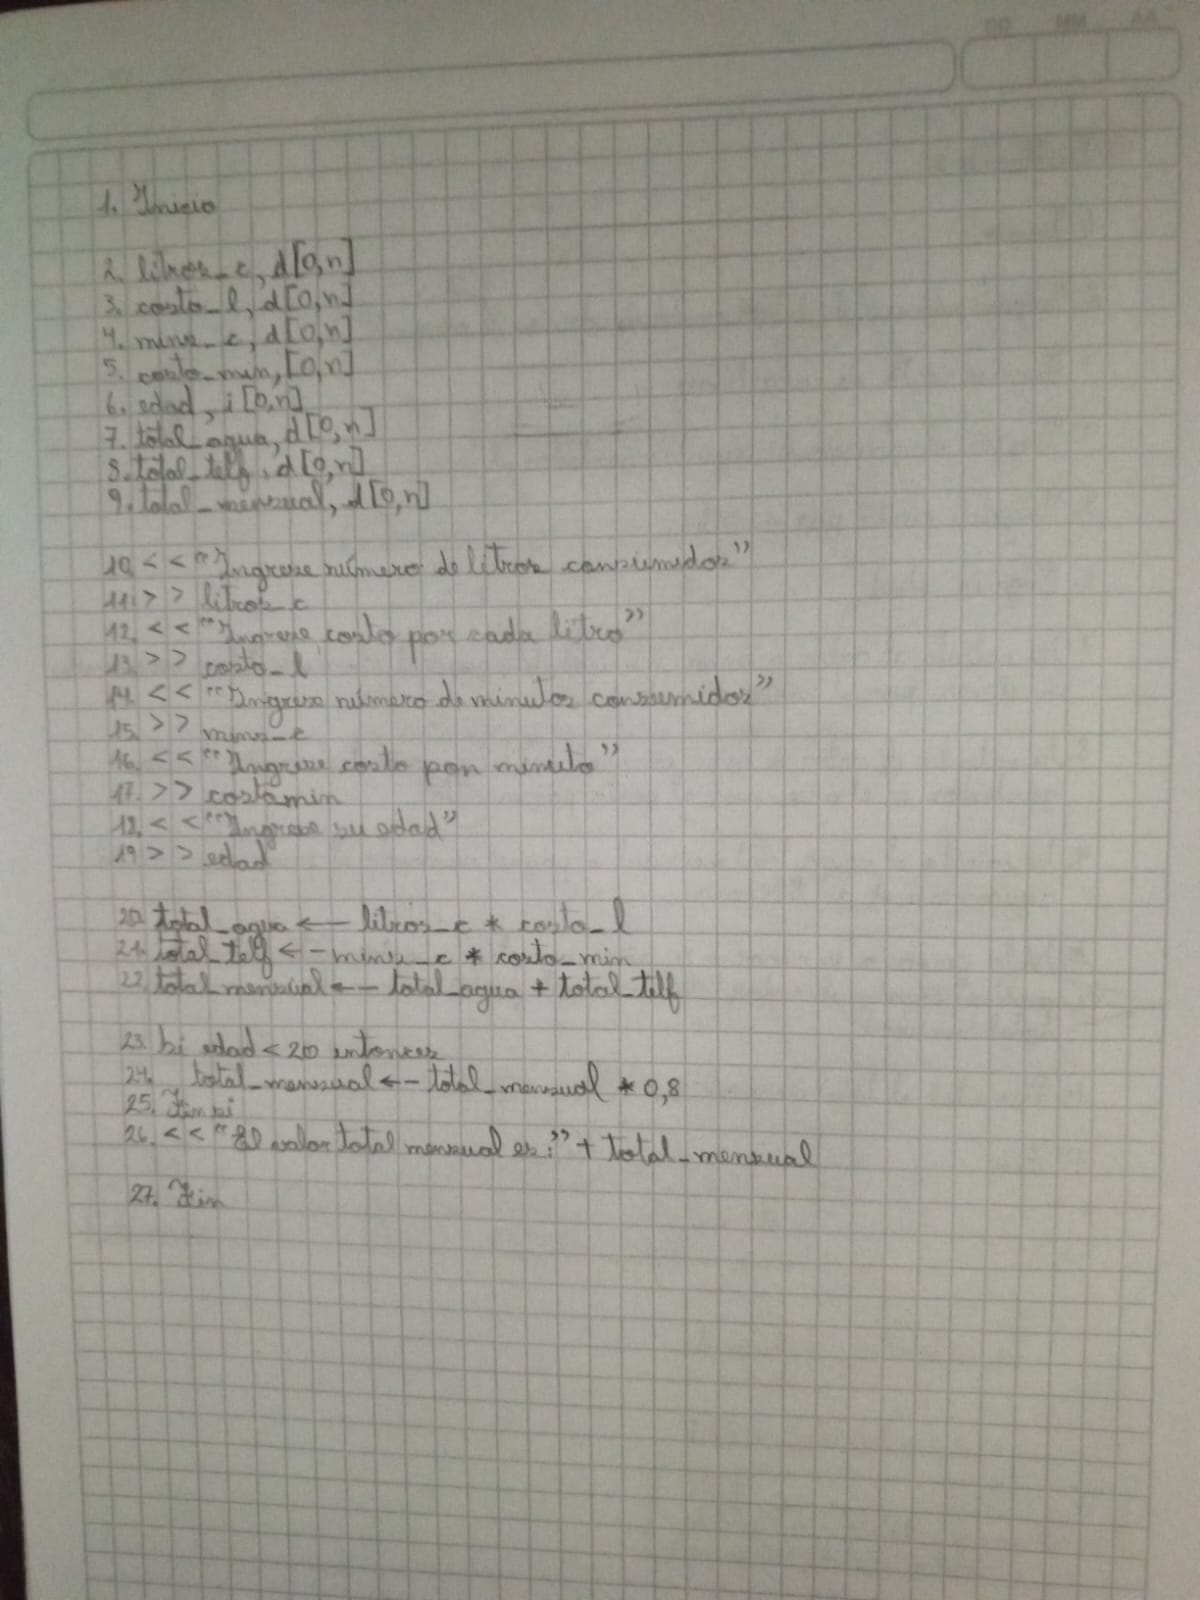 DD MM AA
1. Inicio
2. litros_c, d[0,n]
3. costo_l, d[0,n]
4. mins_c, d[0,n]
5. costo_min, [0,n]
6. edad, i[0,n]
7. total_agua, d[0,n]
8. total_telf, d[0,n]
9. total_mensual, d[0,n]
10. << "Ingrese número de litros consumidos"
11. >> litros_c
12. << "Ingrese costo por cada litro"
13. >> costo_l
14. << "Ingrese número de minutos consumidos"
15. >> mins_c
16. << "Ingrese costo por minuto"
17. >> costomin
18. << "Ingrese su edad"
19 >> edad
20. total_agua <— litros_c * costo_l
21. total_telf <— mins_c * costo_min
22. total_mensual <— total_agua + total_telf
23. Si edad < 20 entonces
24. total_mensual <— total_mensual * 0,8
25. Fin si
26. << "El valor total mensual es:" + total_mensual
27. Fin